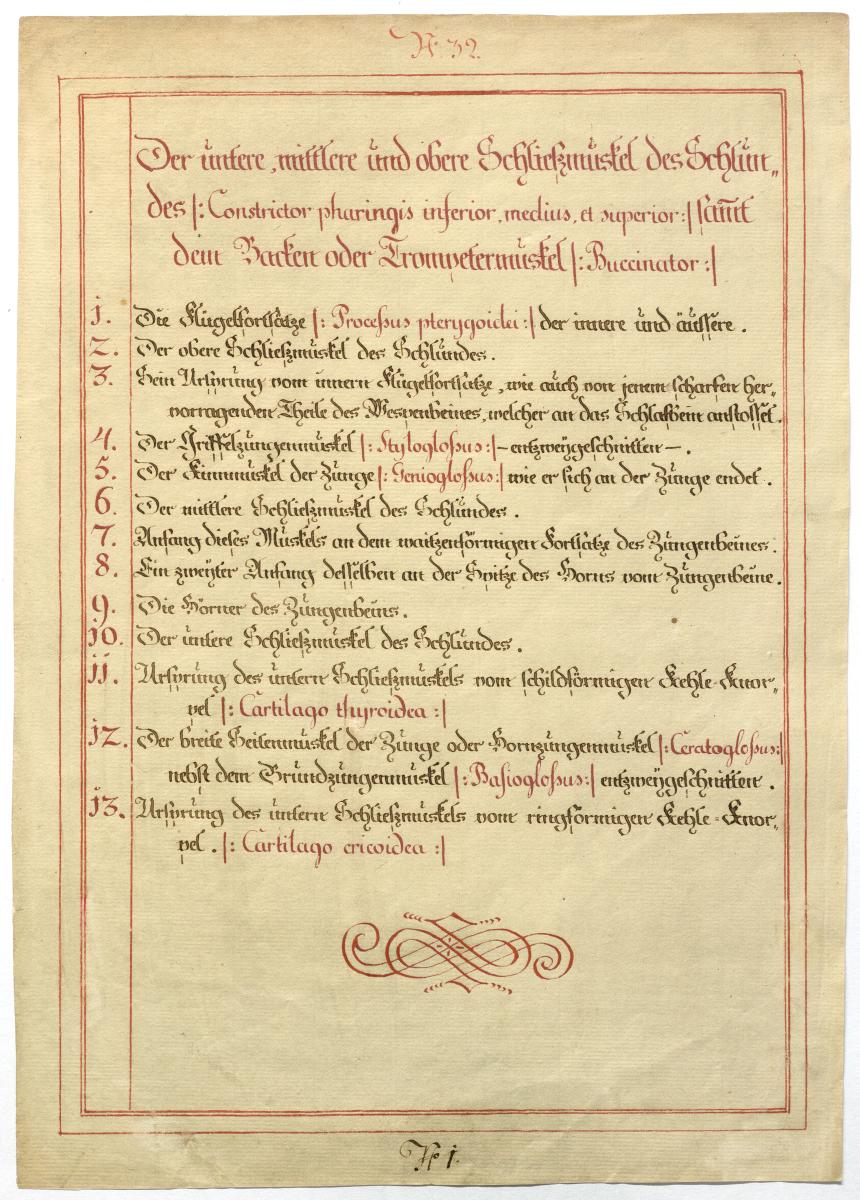 N: 32.
Der untere, mittlere und obere Schließmuskel des Schlun„
des |: Constrictor pharingis inferior, medius, et superior :| sam̅t
dem Backen oder Trompetermuskel |: Buccinator :|
1. Die Flügelfortsätze |: Proceßus pterygoidei :| der innere und äussere.
2. Der obere Schließmuskel des Schlundes.
3. Sein Ursprung vom innern Flügelfortsatze, wie auch von jenem scharfen her„
vorragenden Theile des Wespenbeines, welcher an das Schlafbein anstosset.
4. Der Griffelzungenmuskel |: Stylogloßus :| – entzweygeschnitten – .
5. Der Kinnmuskel der Zunge |: Geniogloßus :| wie er sich an der Zunge endet.
6. Der mittlere Schließmuskel des Schlundes.
7. Anfang dieses Muskels an dem waitzenförmigen Fortsatze des Zungenbeines.
8. Ein zweyter Anfang desselben an der Spitze des Horns vom Zungenbeine.
9. Die Hörner des Zungenbeins.
10. Der untere Schließmuskel des Schlundes.
11. Ursprung des untern Schließmuskels vom schildförmigen Kehle-Knor„
pel |: Cartilago thyroidea :|
12. Der breite Seitenmuskel der Zunge oder Hornzungenmuskel |: Ceratogloßus :|
nebst dem Grundzungenmuskel |: Basiogloßus :| entzweygeschnitten.
13. Ursprung des untern Schließmuskels vom ringförmigen Kehle-Knor„
pel. |: Cartilago cricoidea :|
N° 1.